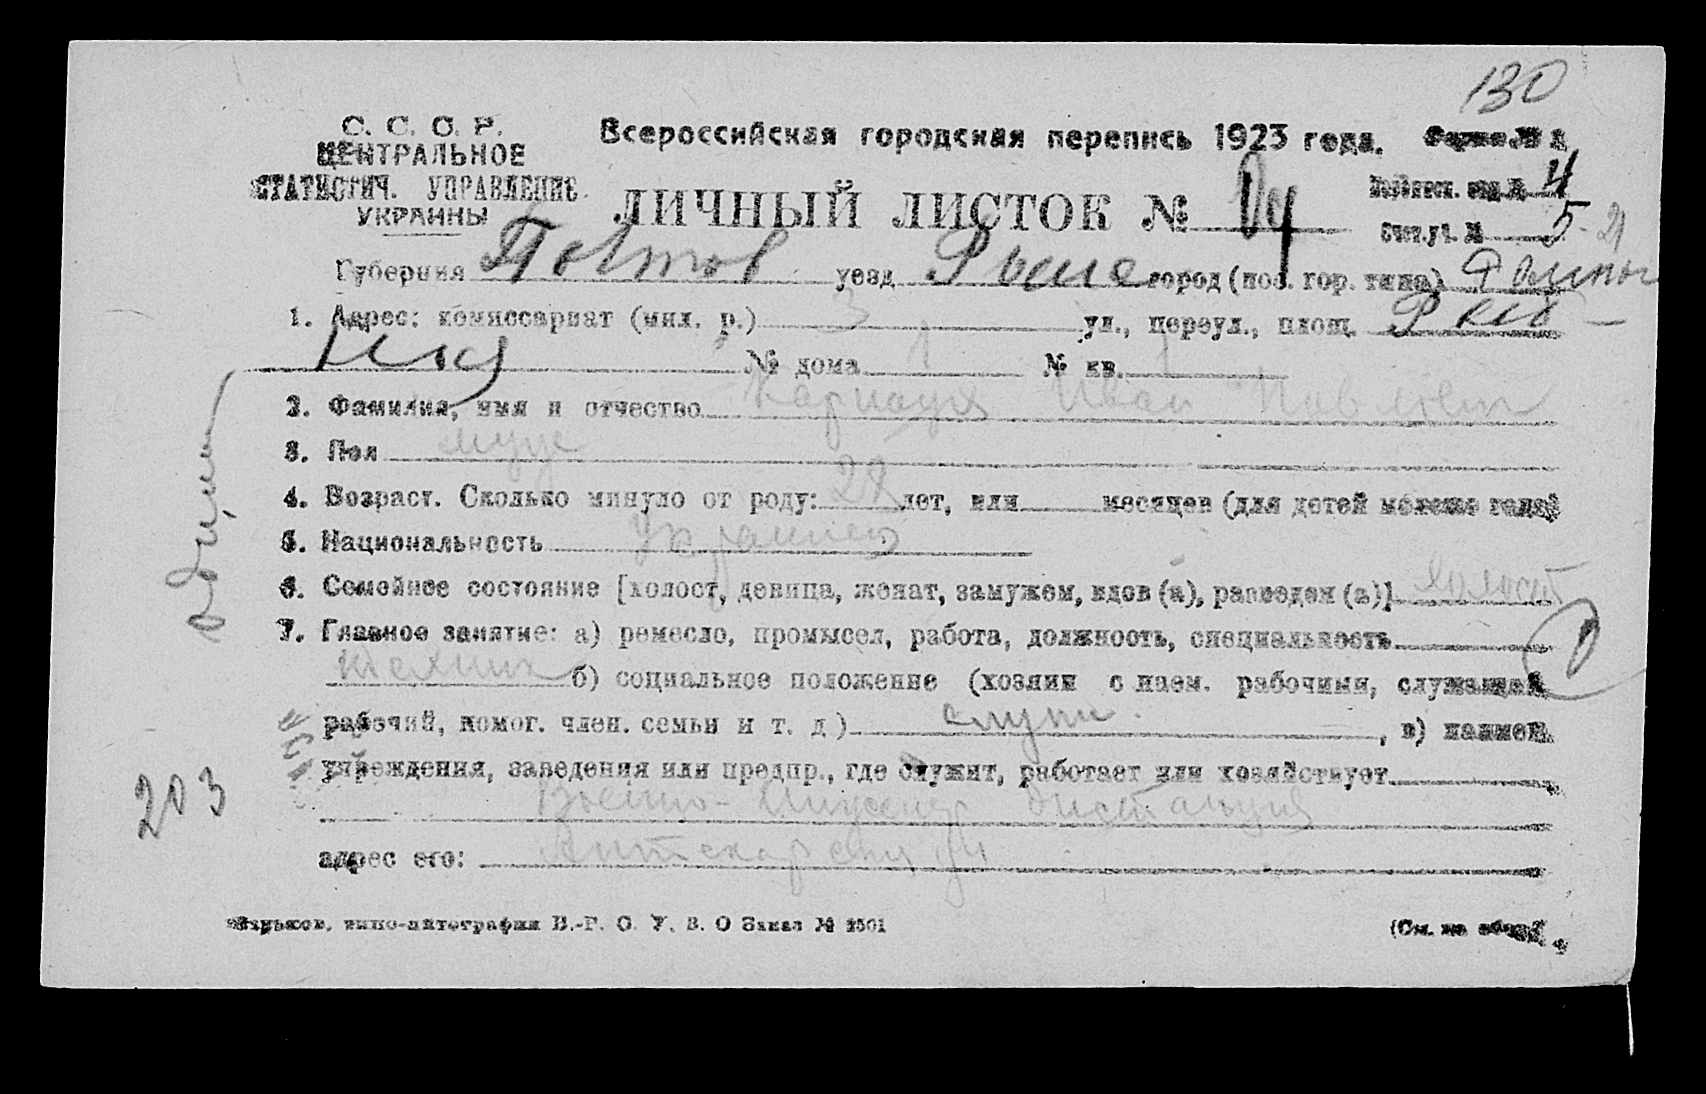 130
С. С. С. Р.
ЦЕНТРАЛЬНОЕ
СТАТИСТИЧ. УПРАВЛЕНИЕ
УКРАИНЫ
Всероссийская городская перепись 1923 года. Форма № 1
ЛИЧНЫЙ ЛИСТОК №
4
Счет. уч. № 5 - 21
Губерния Полтов уезд город (пос. гор. типа)
1. Адрес: комиссариат (мил. р.) 3 ул., переул., площ.
№ дома № кв.
2. Фамилия, имя и отчество Иван Павлов
3. Пол муж
4. Возраст. Сколько минуло от роду: 28 лет, или месяцев (для детей моложе года)
5. Национальность Украинец
6. Семейное состояние [холост, девица, женат, замужем, вдов (а), разведен (а)] холост
7. Главное занятие: а) ремесло, промысел, работа, должность, специальность
техник б) социальное положение (хозяин с наем. рабочими, служащий
рабочий, помог. член. семьи и т. д) служ. , в) наимен.
учреждения, заведения или предпр., где служит, работает или хозяйствует
Военно-Инженер дистанция
адрес его: Аптекарская ул
203
Харьков, типо-литография В.-Р. С. У. В. О Заказ № 2501
(См. на обор.)